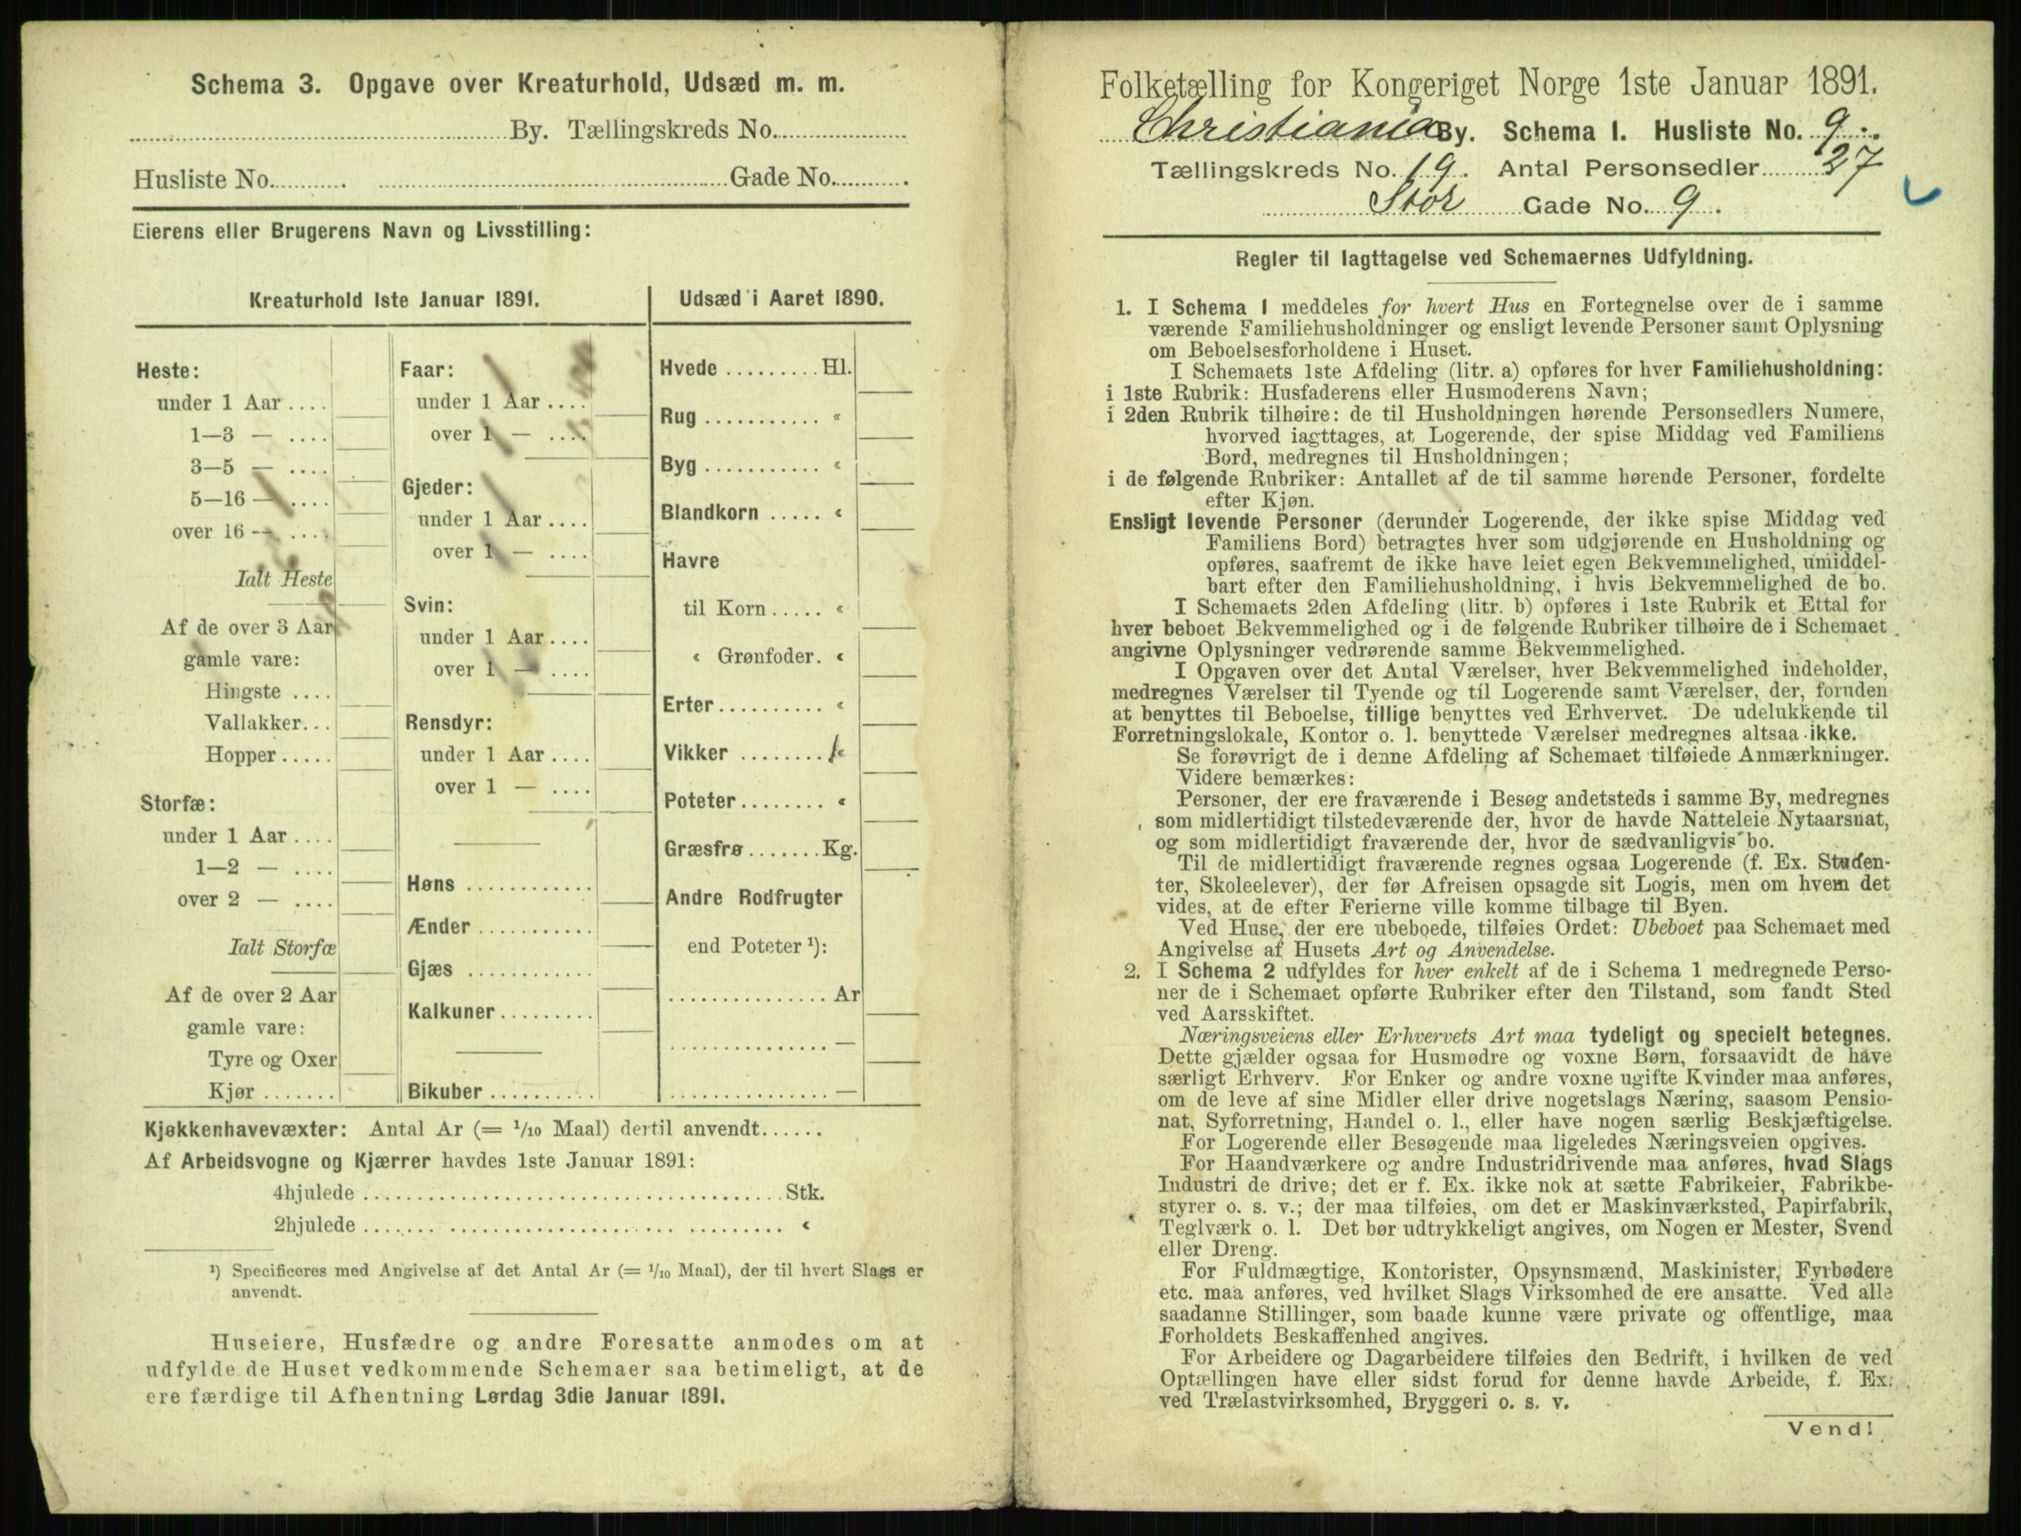 Schema 3. Opgave over Kreaturhold, Udsæd m. m.
By. Tællingskreds No.
Husliste No. Gade No.
Eierens eller Brugerens Navn og Livsstilling:
Kreaturhold 1ste Januar 1891.
Heste:
under 1 Aar ....
1—3 — ....
3—5 — ....
5—16 — ....
over 16 — ....
Ialt Heste
Af de over 3 Aar
gamle vare:
Hingste ....
Vallakker...
Hopper .....
Storfæ:
under 1 Aar ....
1—2 — ....
over 2 — ....
Ialt Storfæ
Af de over 2 Aar
gamle vare:
Tyre og Oxer
Kjør .......
Faar:
under 1 Aar ....
over 1 — ....
Gjeder:
under 1 Aar ....
over 1 — ....
Svin:
under 1 Aar ....
over 1 — ....
Rensdyr:
under 1 Aar ....
over 1 — ....
Høns ............
Ænder ...........
Gjæs ............
Kalkuner.........
Bikuber ..........
Udsæd i Aaret 1890.
Hvede ......... Hl.
Rug ........... «
Byg ........... «
Blandkorn ..... «
Havre
til Korn ..... «
« Grønfoder. «
Erter.......... «
Vikker ........ «
Poteter........ «
Græsfrø ....... Kg.
Andre Rodfrugter
end Poteter ¹):
............... Ar
............... —
............... —
Kjøkkenhavevæxter: Antal Ar (= 1/10 Maal) dertil anvendt......
Af Arbeidsvogne og Kjærrer havdes 1ste Januar 1891:
4hjulede ....................................... Stk.
2hjulede ....................................... «
¹) Specificeres med Angivelse af det Antal Ar (= 1/10 Maal), der til hvert Slags er
anvendt.
Huseiere, Husfædre og andre Foresatte anmodes om at
udfylde de Huset vedkommende Schemaer saa betimeligt, at de
ere færdige til Afhentning Lørdag 3die Januar 1891.
Folketælling for Kongeriget Norge 1ste Januar 1891.
Christiania By. Schema 1. Husliste No. 9.
Tællingskreds No. 19. Antal Personsedler 37
Stor Gade No. 9.
Regler til Iagttagelse ved Schemaernes Udfyldning.
1. I Schema 1 meddeles for hvert Hus en Fortegnelse over de i samme
værende Familiehusholdninger og ensligt levende Personer samt Oplysning
om Beboelsesforholdene i Huset.
I Schemaets 1ste Afdeling (litr. a) opføres for hver Familiehusholdning:
i 1ste Rubrik: Husfaderens eller Husmoderens Navn;
i 2den Rubrik tilhøire: de til Husholdningen hørende Personsedlers Numere,
hvorved iagttages, at Logerende, der spise Middag ved Familiens
Bord, medregnes til Husholdningen;
i de følgende Rubriker: Antallet af de til samme hørende Personer, fordelte
efter Kjøn.
Ensligt levende Personer (derunder Logerende, der ikke spise Middag ved
Familiens Bord) betragtes hver som udgjørende en Husholdning og
opføres, saafremt de ikke have leiet egen Bekvemmelighed, umiddel-
bart efter den Familiehusholdning, i hvis Bekvemmelighed de bo.
I Schemaets 2den Afdeling (litr. b) opføres i 1ste Rubrik et Ettal for
hver beboet Bekvemmelighed og i de følgende Rubriker tilhøire de i Schemaet
angivne Oplysninger vedrørende samme Bekvemmelighed.
I Opgaven over det Antal Værelser, hver Bekvemmelighed indeholder,
medregnes Værelser til Tyende og til Logerende samt Værelser, der, foruden
at benyttes til Beboelse, tillige benyttes ved Erhvervet. De udelukkende til
Forretningslokale, Kontor o. l. benyttede Værelser medregnes altsaa ikke.
Se forøvrigt de i denne Afdeling af Schemaet tilføiede Anmærkninger.
Videre bemærkes:
Personer, der ere fraværende i Besøg andetsteds i samme By, medregnes
som midlertidigt tilstedeværende der, hvor de havde Natteleie Nytaarsnat,
og som midlertidigt fraværende der, hvor de sædvanligvis bo.
Til de midlertidigt fraværende regnes ogsaa Logerende (f. Ex. Studen-
ter, Skoleelever), der før Afreisen opsagde sit Logis, men om hvem det
vides, at de efter Ferierne ville komme tilbage til Byen.
Ved Huse, der ere ubeboede, tilføies Ordet: Ubeboet paa Schemaet med
Angivelse af Husets Art og Anvendelse.
2. I Schema 2 udfyldes for hver enkelt af de i Schema 1 medregnede Perso-
ner de i Schemaet opførte Rubriker efter den Tilstand, som fandt Sted
ved Aarsskiftet.
Næringsveiens eller Erhvervets Art maa tydeligt og specielt betegnes.
Dette gjælder ogsaa for Husmødre og voxne Børn, forsaavidt de have
særligt Erhverv. For Enker og andre voxne ugifte Kvinder maa anføres,
om de leve af sine Midler eller drive nogetslags Næring, saasom Pensio-
nat, Syforretning, Handel o. l., eller have nogen særlig Beskjæftigelse.
For Logerende eller Besøgende maa ligeledes Næringsveien opgives.
For Haandværkere og andre Industridrivende maa anføres, hvad Slags
Industri de drive; det er f. Ex. ikke nok at sætte Fabrikeier, Fabrikbe-
styrer o. s. v.; der maa tilføies, om det er Maskinværksted, Papirfabrik,
Teglværk o. l. Det bør udtrykkeligt angives, om Nogen er Mester, Svend
eller Dreng.
For Fuldmægtige, Kontorister, Opsynsmænd, Maskinister, Fyrbødere
etc. maa anføres, ved hvilket Slags Virksomhed de ere ansatte. Ved alle
saadanne Stillinger, som baade kunne være private og offentlige, maa
Forholdets Beskaffenhed angives.
For Arbeidere og Dagarbeidere tilføies den Bedrift, i hvilken de ved
Optællingen have eller sidst forud for denne havde Arbeide, f. Ex.
ved Trælastvirksomhed, Bryggeri o. s. v.
Vend!